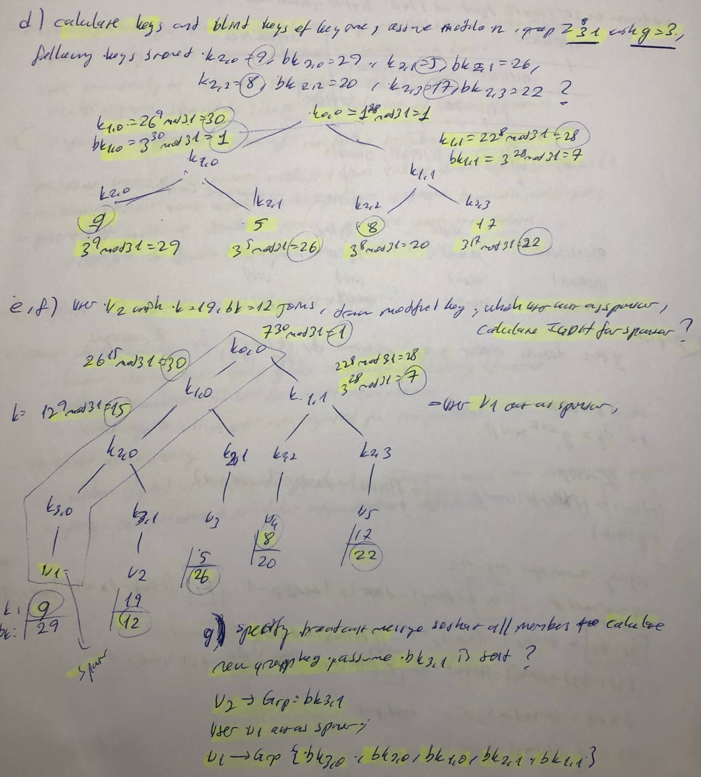 d) calculate keys and blind keys of key tree, assume modulo n, group Z 31 with g=3,
following keys stored k2,0=9, bk2,0=29, k2,1=5, bk2,1=26,
k2,2=8, bk2,2=20, k2,3=17, bk2,3=22 ?
k1,0=26⁹ mod 31=30
k0,0=1²⁸ mod 31=1
k1,1=22⁸ mod 31=28
bk1,0=3³⁰ mod 31=1
bk1,1=3²⁸ mod 31=7
k1,0
k1,1
k2,0
k2,1
k2,2
k2,3
9
5
8
17
3⁹ mod 31=29
3⁵ mod 31=26
3⁸ mod 31=20
3¹⁷ mod 31=22
e,f) user v2 with k=19, bk=12 joins, draw modified key, which user act as sponsor,
calculate TGDH for sponsor ?
7³⁰ mod 31=1
k0,0
26¹⁵ mod 31=30
22⁸ mod 31=28
3²⁸ mod 31=7
k1,0
k1,1
k= 12⁹ mod 31=15
=user v1 act as sponsor,
k2,0
k2,1
k2,2
k2,3
k3,0
k3,1
v3
v4
v5
v1
v2
5
26
8
20
17
22
k: 9
bk: 29
19
12
sponsor
g) specify broadcast message so that all member calculate
new group key, assume bk3,1 is sent ?
v2 → Grp = bk3,1
User v1 act as sponsor;
v1 → Grp {bk3,0, bk2,0, bk1,0, bk2,1, bk1,1}